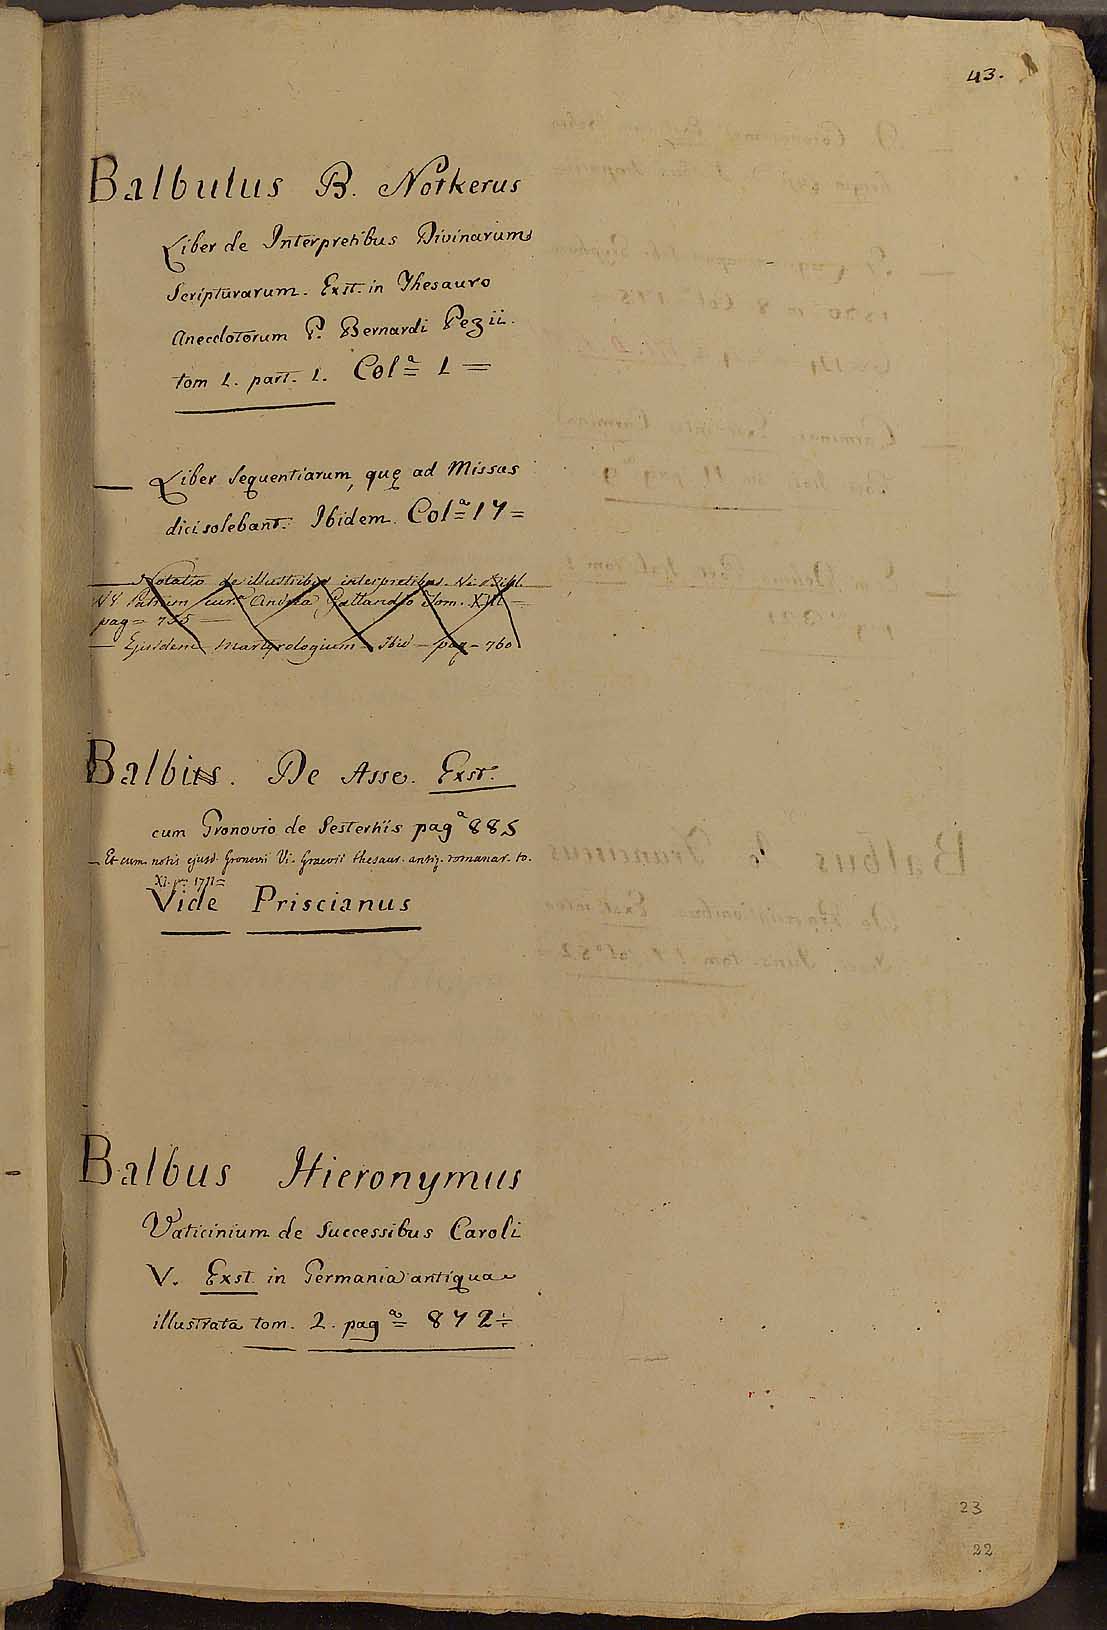 43.
Balbulus B. Notkerus
Liber de Interpretibus Divinarum
Scripturarum. Exst. in Thesauro
Anecdotorum P. Bernardi Pezii.
tom 1. part. 1. Colª 1 =
— Liber sequentiarum, quę ad Missas
dici solebant. Ibidem. Colª 17 =
— Notatio de illustribus interpretibus. Vi. Bibl.
VV Patrum cur.ᵉ Andrea Gallandio Tom. XIII =
pag = 755 —
— Ejusdem Martyrologium – Ibid – pag – 760
Balbus. De Asse. Exst.
cum Gronovio de Sestertiis pagª 885
— Et cum notis ejusd. Gronovii Vi. Graevii thesaur. antiq. romanar. to.
XI. p. 1711 =
Vide Priscianus
Balbus Hieronymus
Vaticinium de Successibus Caroli
V. Exst. in Germania antiqua
illustrata tom. 2. pagª 872 ÷
23
22